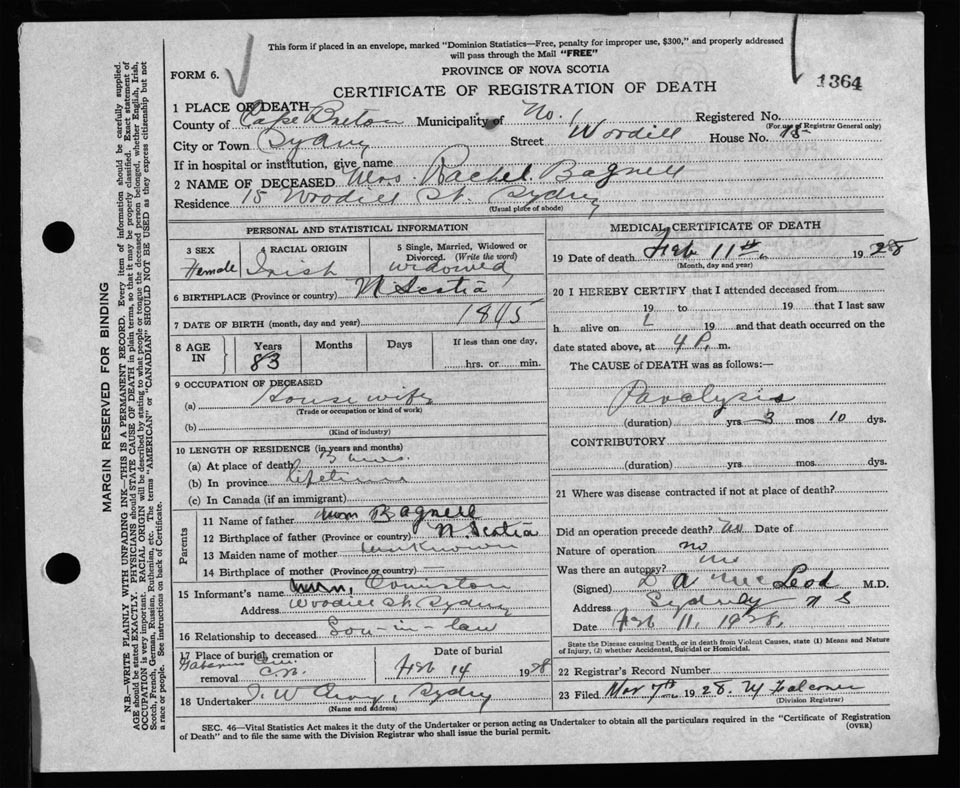 This form if placed in an envelope, marked "Dominion Statistics—Free, penalty for improper use, $300," and properly addressed
will pass through the Mail "FREE"
FORM 6.
PROVINCE OF NOVA SCOTIA
1364
CERTIFICATE OF REGISTRATION OF DEATH
1 PLACE OF DEATH
County of Cape Breton Municipality of No. 1 Registered No.
(For use of Registrar General only)
City or Town Sydney Street Woodill House No. 15
If in hospital or institution, give name
2 NAME OF DECEASED Mrs. Rachel Bagnell
Residence 15 Woodill St. Sydney
(Usual place of abode)
PERSONAL AND STATISTICAL INFORMATION
3 SEX Female
4 RACIAL ORIGIN Irish
5 Single, Married, Widowed or Divorced. (Write the word) widowed
6 BIRTHPLACE (Province or country) N Scotia
7 DATE OF BIRTH (month, day and year) 1845
8 AGE IN Years 83 Months Days If less than one day, hrs. or min.
9 OCCUPATION OF DECEASED
(a) House wife
(Trade or occupation or kind of work)
(b)
(Kind of industry)
10 LENGTH OF RESIDENCE (in years and months)
(a) At place of death
(b) In province lifetime
(c) In Canada (if an immigrant)
Parents
11 Name of father Wm Bagnell
12 Birthplace of father (Province or country) N. Scotia
13 Maiden name of mother unknown
14 Birthplace of mother (Province or country)
15 Informant's name
Address Woodill St. Sydney
16 Relationship to deceased Son-in-law
17 Place of burial, cremation or removal Gabarus Cem. C.B.
Date of burial Feb 14 1928
18 Undertaker Sydney
(Name and address)
MEDICAL CERTIFICATE OF DEATH
19 Date of death Feb 11th 1928
(Month, day and year)
20 I HEREBY CERTIFY that I attended deceased from
19 to 19 that I last saw
h alive on 19 and that death occurred on the
date stated above, at 4 P. m.
The CAUSE of DEATH was as follows:—
Paralysis
(duration) yrs 3 mos 10 dys.
CONTRIBUTORY
(duration) yrs mos dys.
21 Where was disease contracted if not at place of death?
Did an operation precede death? No Date of
Nature of operation no
Was there an autopsy? no
(Signed) D A McLeod M.D.
Address Sydney N S
Date Feb 11, 1928.
State the Disease causing Death, or in death from Violent Causes, state (1) Means and Nature
of Injury, (2) whether Accidental, Suicidal or Homicidal.
22 Registrar's Record Number
23 Filed Mar 7th 1928. M Falconer
(Division Registrar)
SEC. 46—Vital Statistics Act makes it the duty of the Undertaker or person acting as Undertaker to obtain all the particulars required in the "Certificate of Registration
of Death" and to file the same with the Division Registrar who shall issue the burial permit.
(OVER)
MARGIN RESERVED FOR BINDING
N.B.—WRITE PLAINLY WITH UNFADING INK—THIS IS A PERMANENT RECORD. Every item of information should be carefully supplied.
AGE should be stated EXACTLY. PHYSICIANS should STATE CAUSE OF DEATH in plain terms, so that it may be properly classified. Exact statement of
OCCUPATION is very important. RACIAL ORIGIN will be described by stating to what people or tongue the deceased person belonged, whether English, Irish,
Scotch, French, German, Russian, Ruthenian, etc. The terms "AMERICAN" or "CANADIAN" SHOULD NOT BE USED as they express citizenship but not
a race or people. See instructions on back of Certificate.